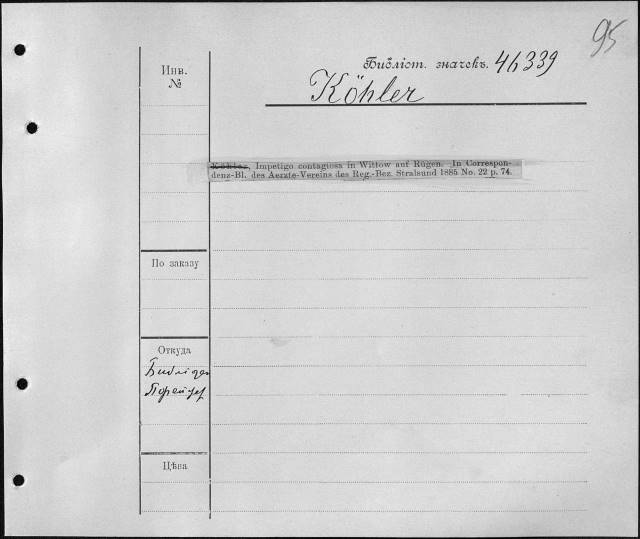 95
Библіот. значекъ. 46339
Köhler
Инв.
№
Köhler, Impetigo contagiosa in Wittow auf Rügen. In Correspon-
denz-Bl. des Aerzte-Vereins des Reg.-Bez. Stralsund 1885 No. 22 p. 74.
По заказу
Откуда
Цѣна